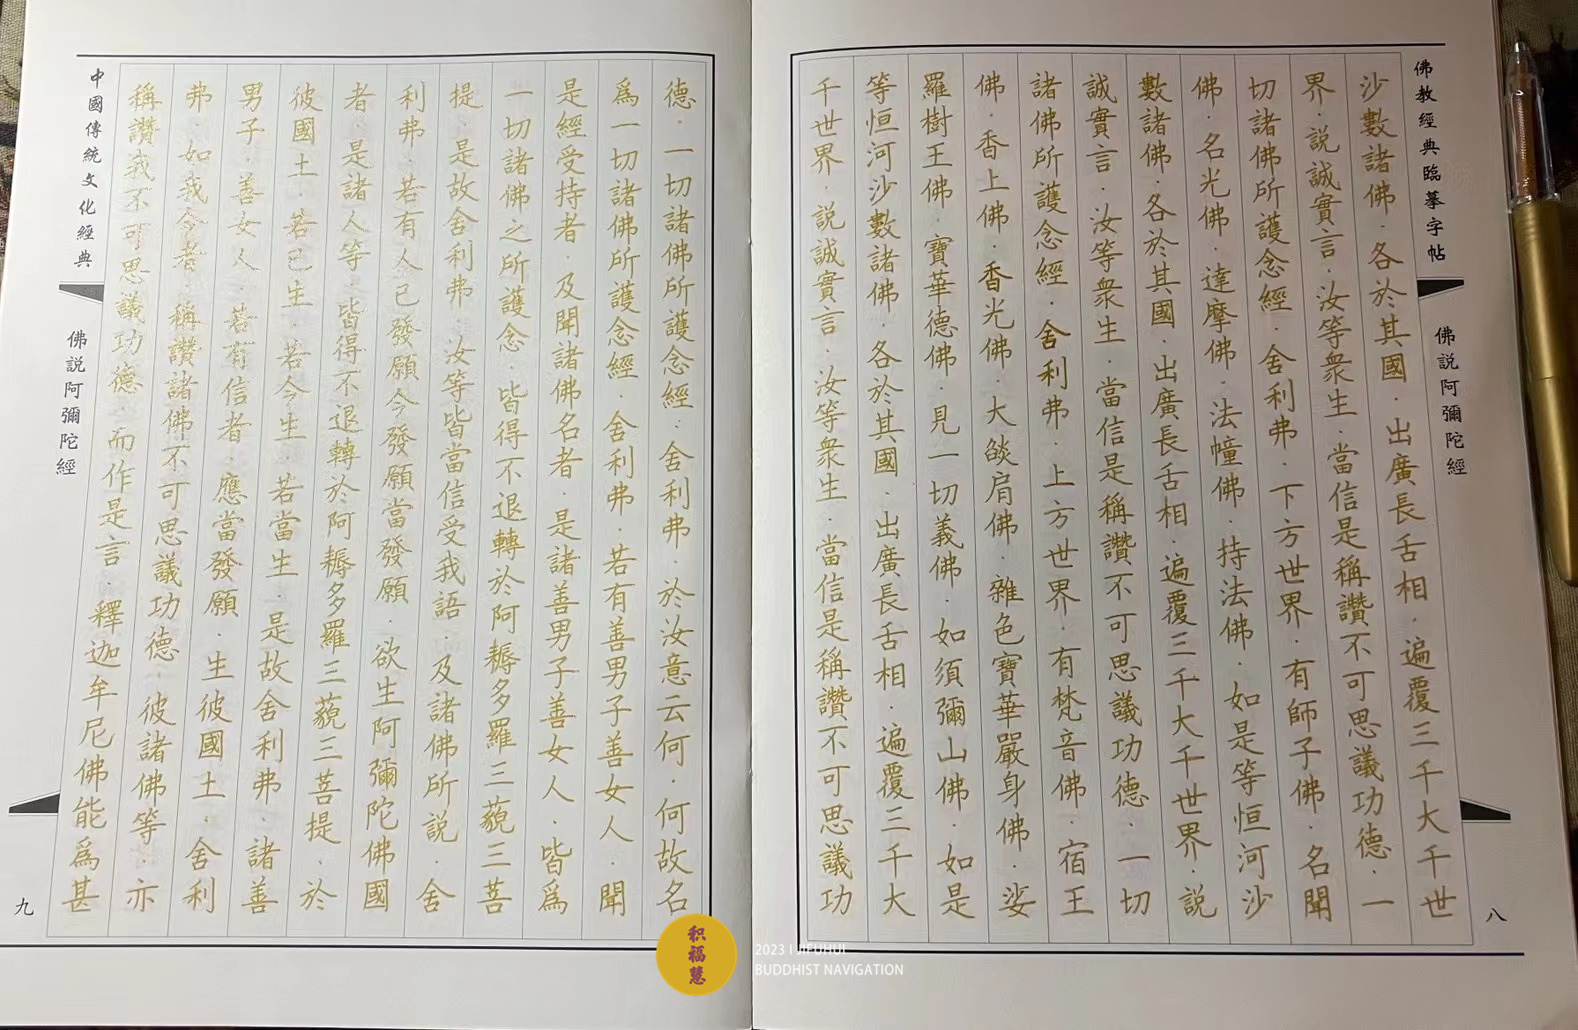 佛教經典臨摹字帖
佛説阿彌陀經
八
沙數諸佛·各於其國·出廣長舌相·遍覆三千大千世
界·説誠實言·汝等衆生·當信是稱讚不可思議功德·一
切諸佛所護念經·舍利弗·下方世界·有師子佛·名聞
佛·名光佛·達摩佛·法幢佛·持法佛·如是等恒河沙
數諸佛·各於其國·出廣長舌相·遍覆三千大千世界·説
誠實言·汝等衆生·當信是稱讚不可思議功德·一切
諸佛所護念經·舍利弗·上方世界·有梵音佛·宿王
佛·香上佛·香光佛·大燄肩佛·雜色寶華嚴身佛·娑
羅樹王佛·寶華德佛·見一切義佛·如須彌山佛·如是
等恒河沙數諸佛·各於其國·出廣長舌相·遍覆三千大
千世界·説誠實言·汝等衆生·當信是稱讚不可思議功
德·一切諸佛所護念經·舍利弗·於汝意云何·何故名
爲一切諸佛所護念經·舍利弗·若有善男子善女人·聞
是經受持者·及聞諸佛名者·是諸善男子善女人·皆爲
一切諸佛之所護念·皆得不退轉於阿耨多羅三藐三菩
提·是故舍利弗·汝等皆當信受我語·及諸佛所説·舍
利弗·若有人已發願今發願當發願·欲生阿彌陀佛國
者·是諸人等·皆得不退轉於阿耨多羅三藐三菩提·於
彼國土·若已生·若今生·若當生·是故舍利弗·諸善
男子·善女人·若有信者·應當發願·生彼國土·舍利
弗·如我今者·稱讚諸佛不可思議功德·彼諸佛等·亦
稱讚我不可思議功德·而作是言·釋迦牟尼佛能爲甚
中國傳統文化經典
佛説阿彌陀經
九
积福慧
2023 | JIFUHUI
BUDDHIST NAVIGATION